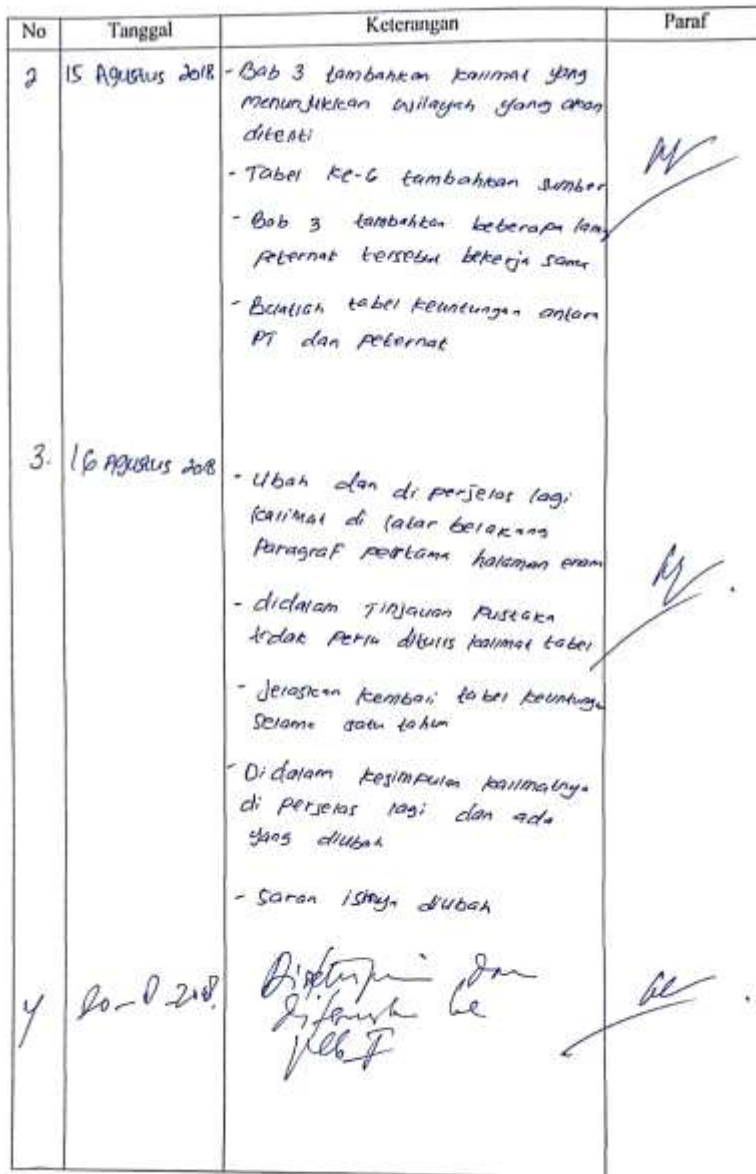 No Tanggal Keterangan Paraf
2 15 Agustus 2018 - Bab 3 tambahkan kalimat yang
menunjukkan wilayah yang akan
diteliti
- Tabel ke-6 tambahkan sumber
- Bab 3 tambahkan beberapa lama
peternak tersebut bekerja sama
- Buatlah tabel keuntungan antara
PT dan peternak
3. 16 Agustus 2018
- Ubah dan di perjelas lagi
kalimat di latar belakang
Paragraf pertama halaman enam
- didalam Tinjauan Pustaka
tidak perlu ditulis kalimat tabel
- Jelaskan kembali tabel keuntungan
selama satu tahun
- Didalam kesimpulan kalimatnya
di perjelas lagi dan ada
yang diubah
- Saran isinya diubah
4 Disetujui dan
ke